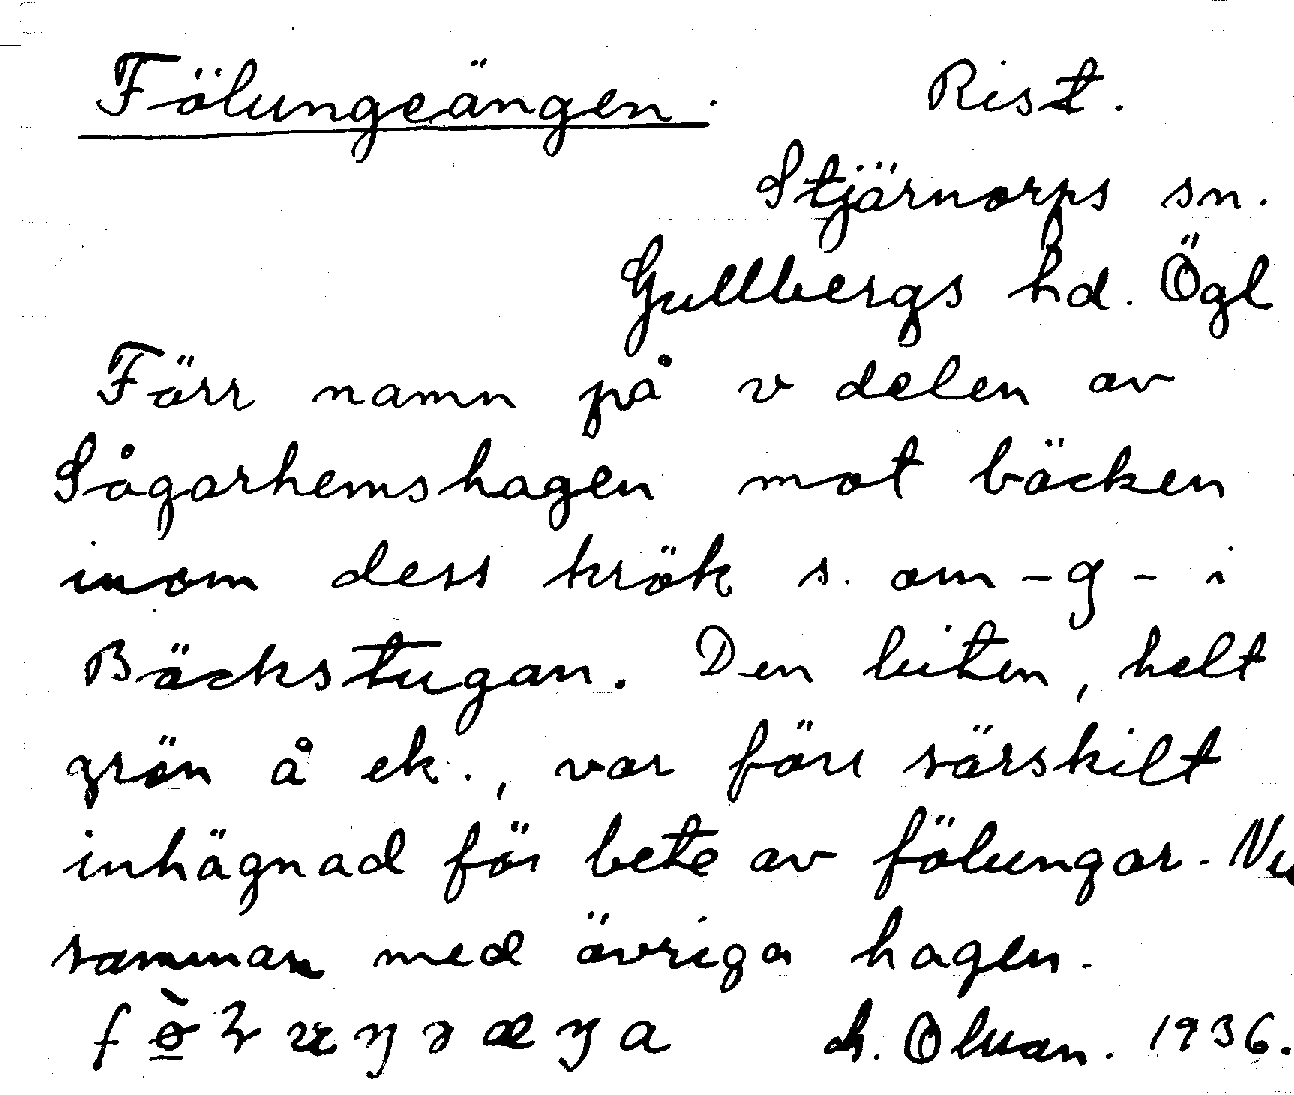 Fölungeängen. Rist.
Stjärnorps sn.
Gullbergs hd. Ögl
Förr namn på v delen av
Sågarhemshagen mot bäcken
inom dess krök s. om -g- i
Bäckstugan. Den biten, helt
grön å ek., var förr särskilt
inhägnad för bete av fölungar. Nu
samman med övriga hagen.
1936.